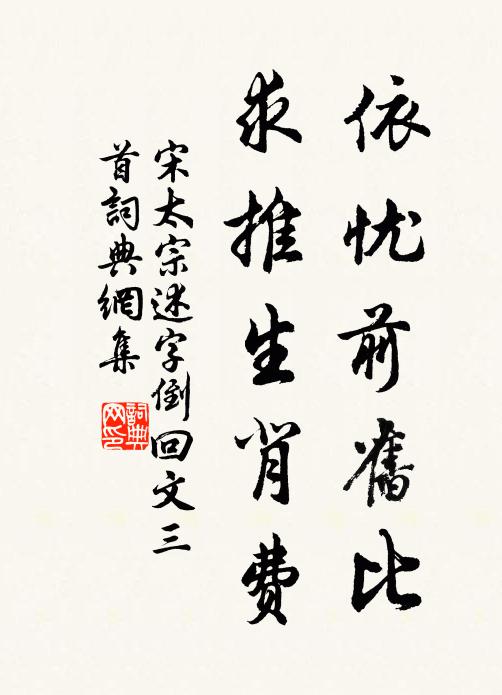 依忧前旧比
求推生肖费
宋太宗述字倒回文三
首詞典網集
詞典网印